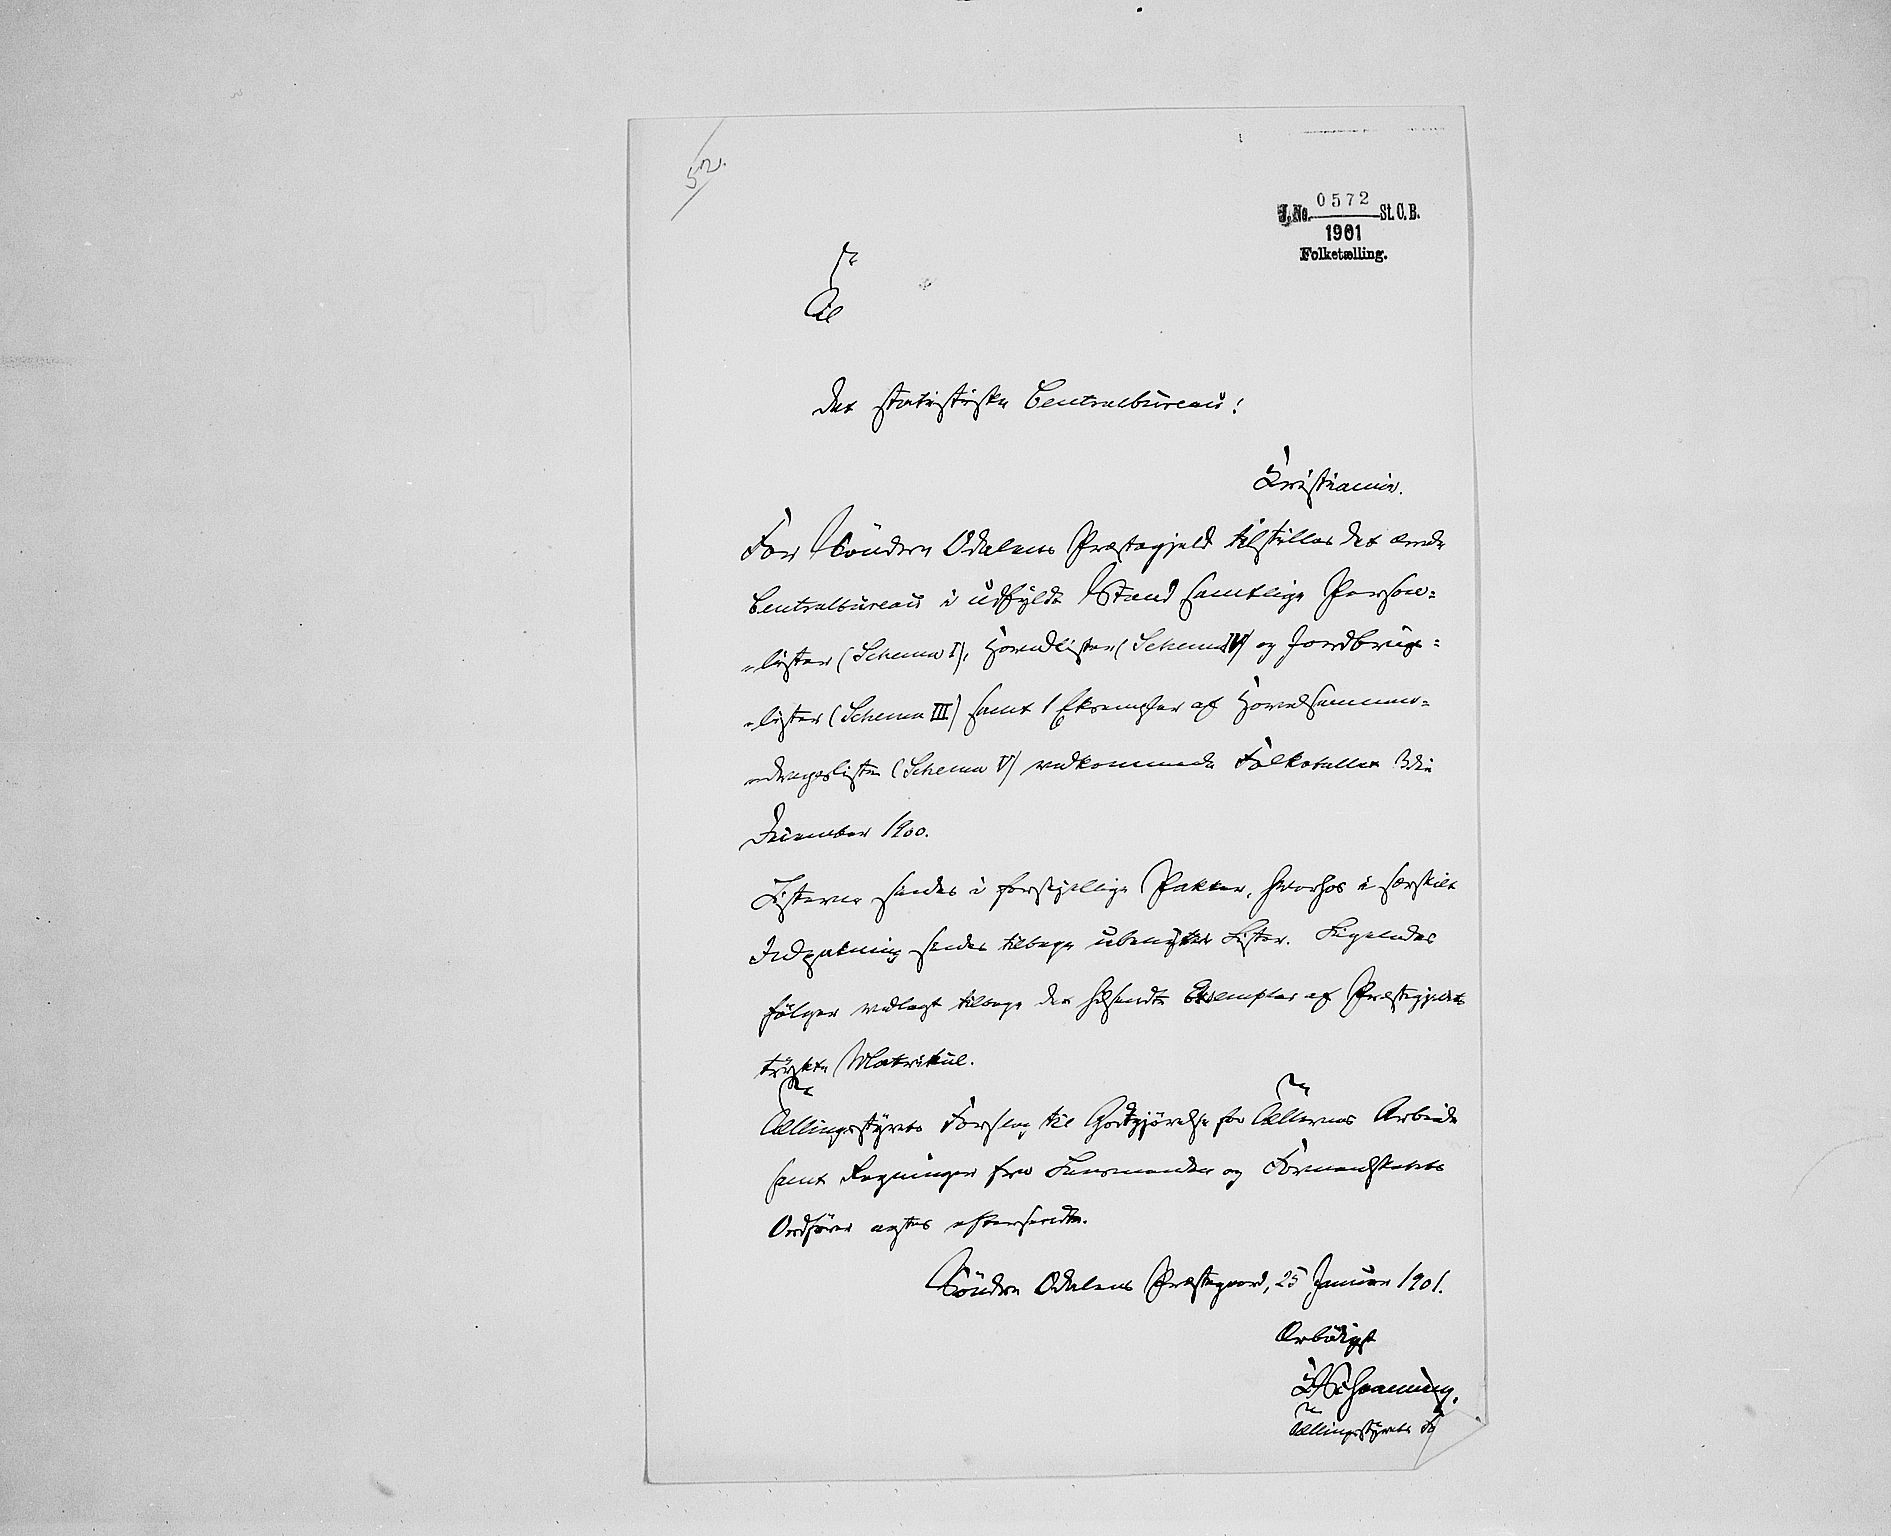 52.
J. No. 0572 St. C. B.
1901
Folketælling.
Til
Det statistiske Centralbureau!
Kristiania.
For Söndre Odalens Præstegjeld tilstilles det ærede
Centralbureau i udfyldt Stand samtlige Person-
-lister (Schema I), Hovedlister (Schema IV) og Jordbrugs-
-lister (Schema III) samt 1 Eksemplar af Hovedsammen-
-dragslisten (Schema V) vedkommende Folketallet 3die
December 1900.
Listerne sendes i forskjellige Pakker, hvorhos i særskilt
Indpakning sendes tilbage ubenyttede Lister. Ligeledes
følger vedlagt tilbage det tilsendte Eksemplar af Præstegjeldets
trykte Matrikul.
Tællingsstyrets Forslag til Godtgjörelse for Tællernes Arbeide
samt Regninger fra Lensmanden og Formandskabets
Ordförer agtes eftersendte.
Söndre Odalens Præstegaard, 25 Januar 1901.
Ærbödigst
Schanning.
Tællingsstyrets Fo